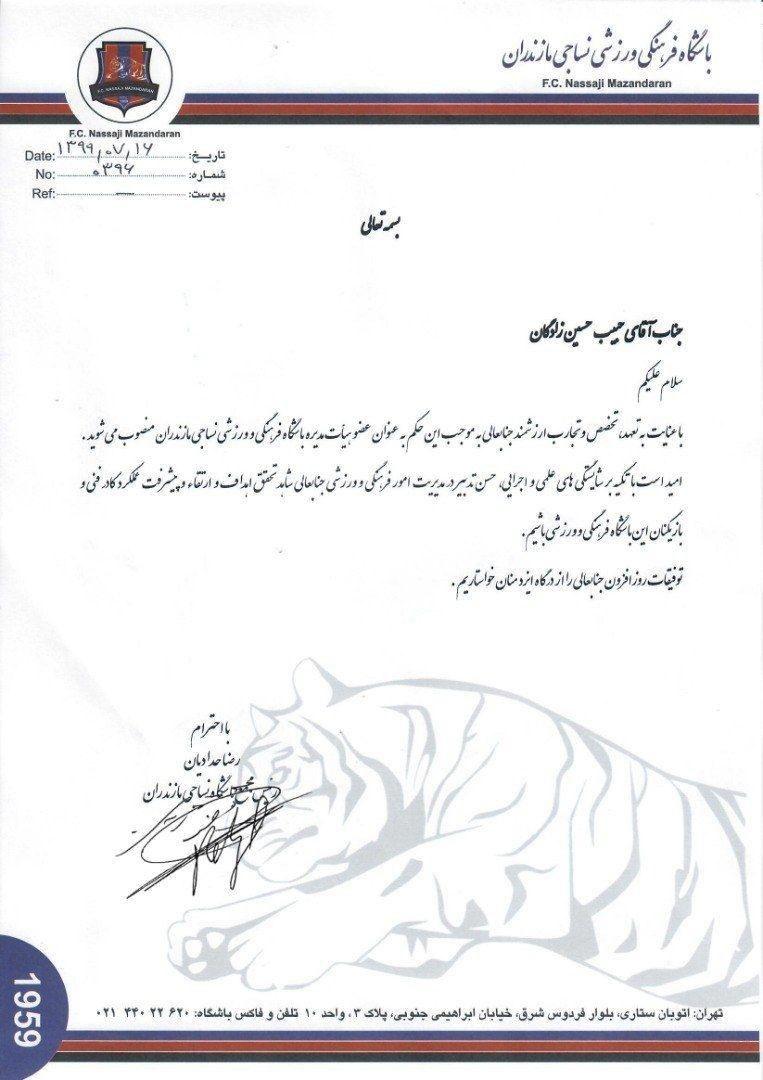 باشگاه فرهنگی ورزشی نساجی مازندران
F.C. Nassaji Mazandaran
F.C. NASSAJI MAZANDARAN
F.C. Nassaji Mazandaran
تاریخ: ۱۳۹۹,۰۷,۱۶ Date:
شماره: ۰۳۹۶ No:
پیوست: — Ref:
بسمه تعالی
جناب آقای حبیب حسین زادگان
سلام علیکم
با عنایت به تعهد، تخصص و تجارب ارزشمند جنابعالی به موجب این حکم به عنوان عضو هیأت مدیره باشگاه فرهنگی و ورزشی نساجی مازندران منصوب می شوید.
امید است با تکیه بر شایستگی های علمی و اجرایی، حسن تدبیر در مدیریت امور فرهنگی و ورزشی جنابعالی شاهد تحقق اهداف و ارتقاء و پیشرفت عملکرد کادر فنی و
بازیکنان این باشگاه فرهنگی و ورزشی باشیم.
توفیقات روز افزون جنابعالی را از درگاه ایزد منان خواستاریم.
با احترام
رضا حدادیان
باشگاه نساجی مازندران
1959
تهران: اتوبان ستاری، بلوار فردوس شرق، خیابان ابراهیمی جنوبی، پلاک ۳، واحد ۱۰ تلفن و فاکس باشگاه: ۶۲۰ ۲۲ ۴۴۰ ۰۲۱